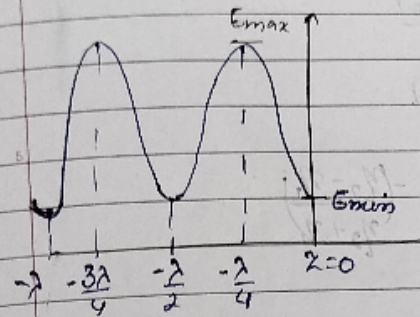 Emax
Emin
-λ -3λ/4 -λ/2 -λ/4 z=0